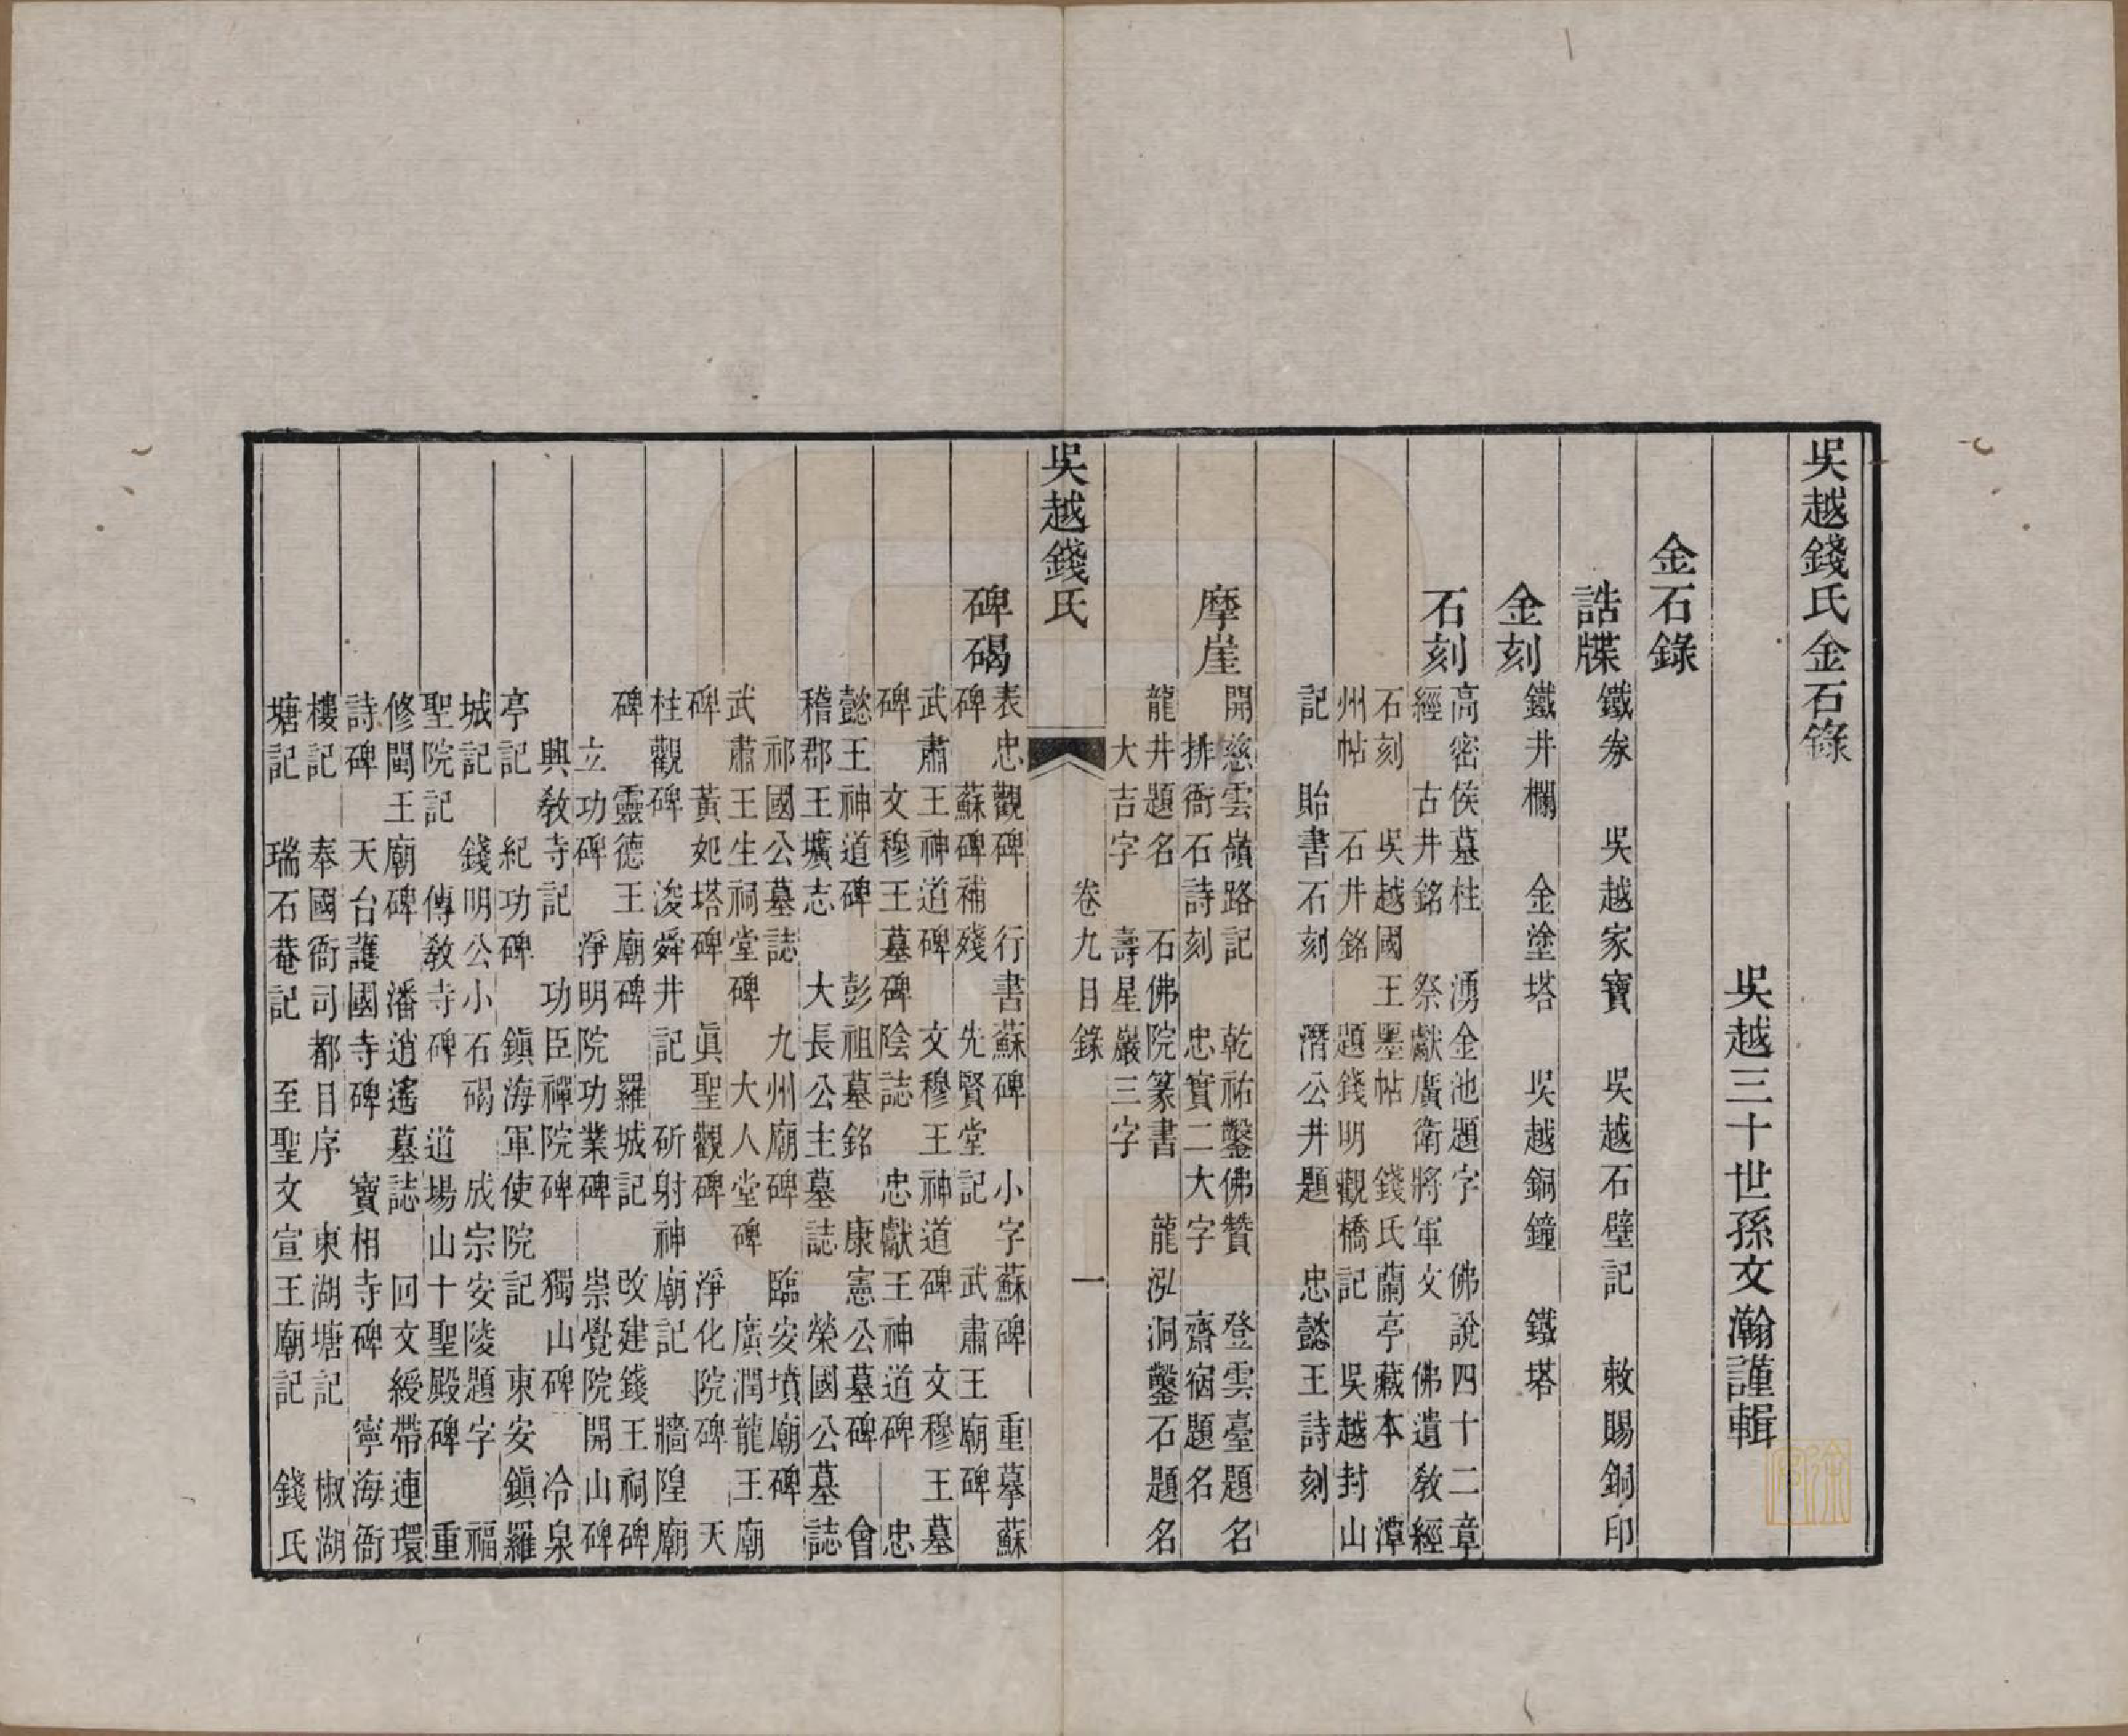 吳越錢氏金石錄
吳越三十世孫文瀚謹輯
金石錄
誥牒 鐵券 吳越家寶 吳越石壁記 敕賜銅印
金刻 鐵井欄 金塗塔 吳越銅鐘 鐵塔
石刻 高密侯墓柱 湧金池題字 佛說四十二章
經 古井銘 祭獻廣衛將軍文 佛遺教經
石刻 吳越國王墨帖 錢氏蘭亭藏本 潭
州帖 石井銘 題錢明觀橋記 吳越封山
記 貽書石刻 潛公井題 忠懿王詩刻
摩崖 開慈雲嶺路記 乾祐鑿佛贊 登雲臺題名
排衙石詩刻 忠實二大字 齋宿題名
龍井題名 石佛院篆書 龍泓洞鑿石題名
大吉字 壽星巖三字
吳越錢氏 卷九目錄 一
碑碣 表忠觀碑 行書蘇碑 小字蘇碑 重摹蘇
碑 蘇碑補殘 先賢堂記 武肅王廟碑
武肅王神道碑 文穆王神道碑 文穆王墓
碑 文穆王墓碑陰誌 忠獻王神道碑 忠
懿王神道碑 彭祖墓銘 康憲公墓碑 會
稽郡王壙志 大長公主墓誌 榮國公墓誌
祁國公墓誌 九州廟碑 臨安墳廟碑
武肅王生祠堂碑 大人堂碑 廣潤龍王廟
碑 黃妃塔碑 眞聖觀碑 淨化院碑 天
柱觀碑 浚舜井記 斫射神廟記 牆隍廟
碑 靈德王廟碑 羅城記 改建錢王祠碑
立功碑 淨明院功業碑 崇覺院開山碑
興教寺記 功臣禪院碑 獨山碑 冷泉
亭記 紀功碑 鎭海軍使院記 東安鎭羅
城記 錢明公小石碣 成宗安陵題字 福
聖院記 傳教寺碑 道場山十聖殿碑 重
修閩王廟碑 潘逍遙墓誌 回文綬帶連環
詩碑 天台護國寺碑 寶相寺碑 寧海衙
樓記 奉國衙司都目序 東湖塘記 椒湖
塘記 瑞石菴記 至聖文宣王廟記 錢氏